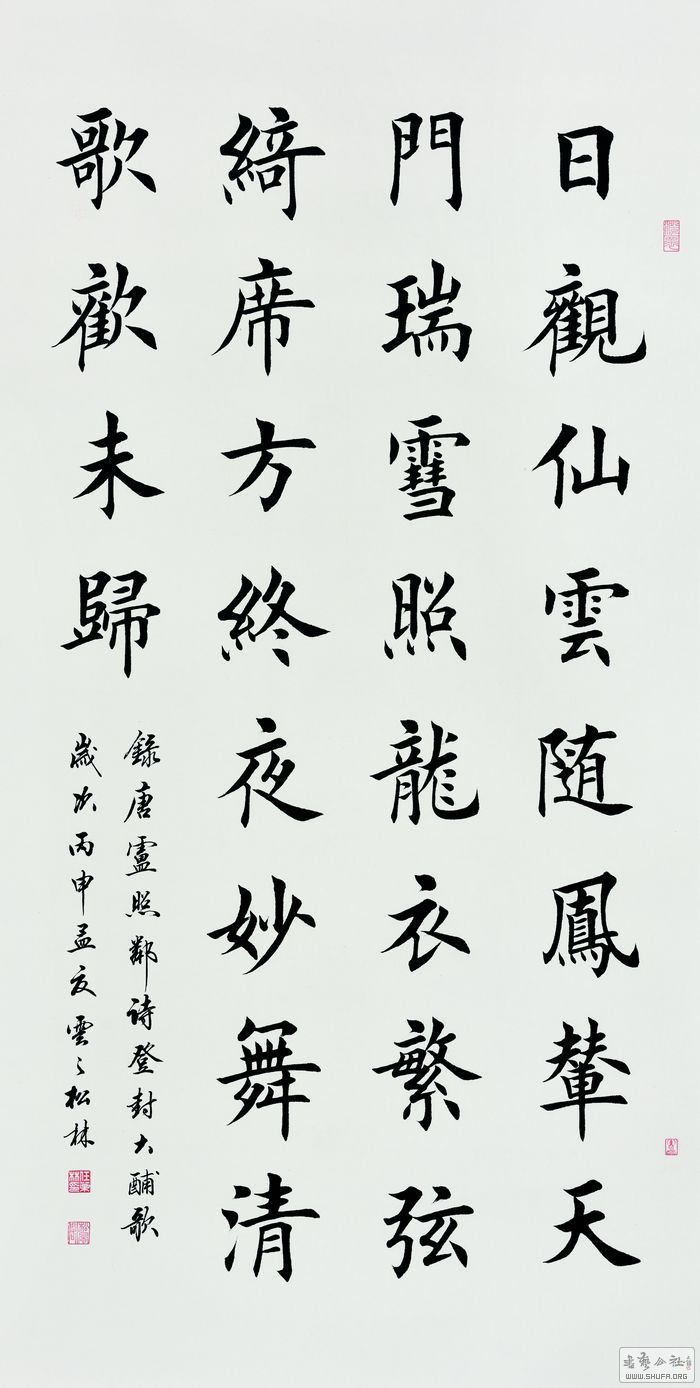 日觀仙雲隨鳳輦天
門瑞雪照龍衣繁弦
綺席方終夜妙舞清
歌歡未歸
錄唐盧照鄰诗登封大酺歌
歲次丙申孟夏雲之松林
书艺公社
WWW.SHUFA.ORG